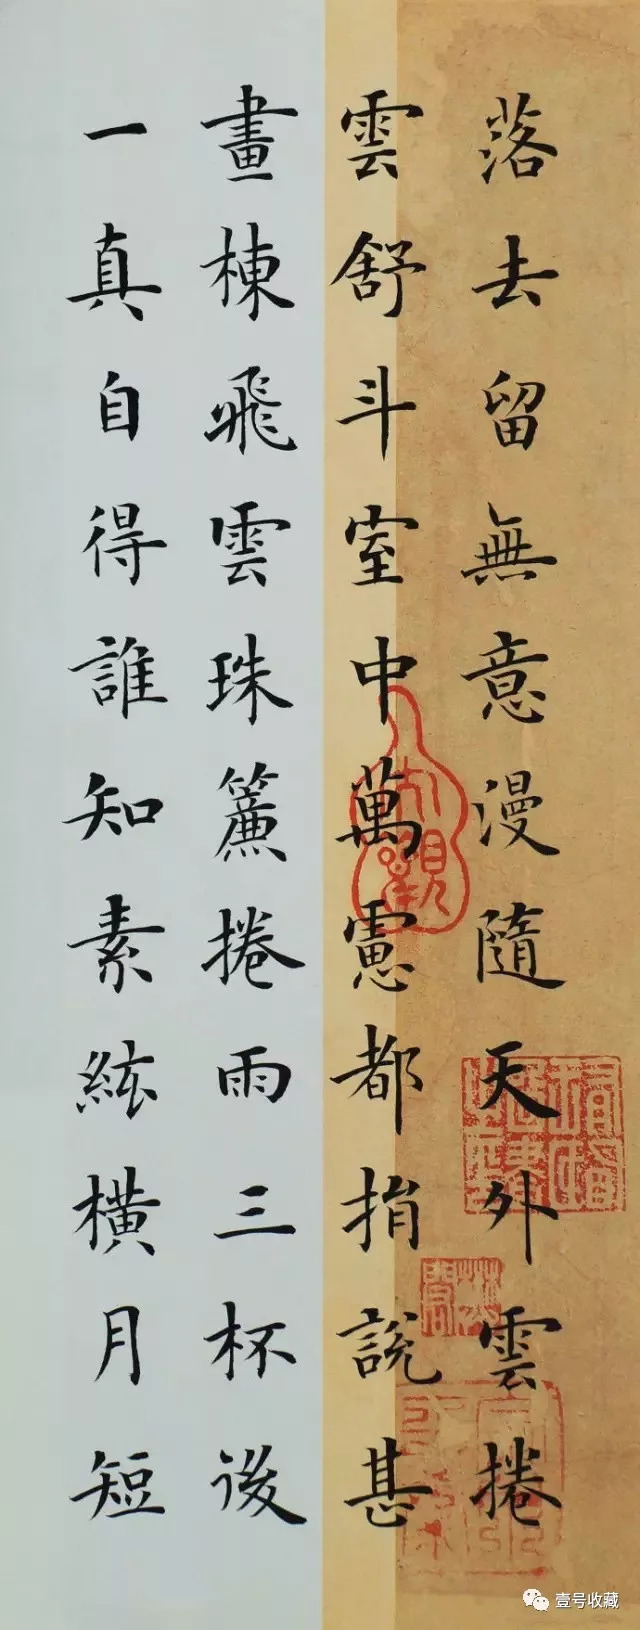 落去留無意漫隨天外雲捲
雲舒斗室中萬慮都捐說甚
畫棟飛雲珠簾捲雨三杯後
一真自得誰知素絃橫月短
壹号收藏